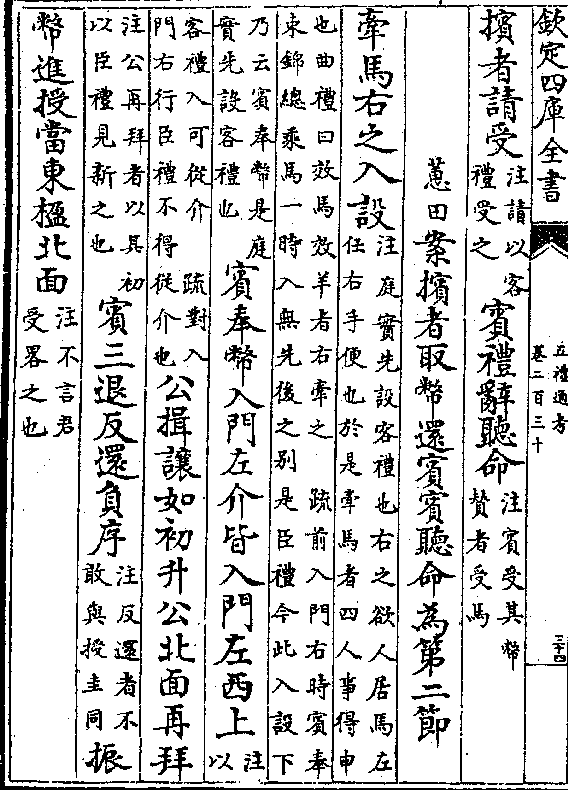 欽定四庫全書
五禮通考
卷二百三十
二十四
擯者請受注請以客禮受之賓禮辭聽命注賓受其幣贊者受馬
蕙田案擯者取幣還賓賓聽命為第二節
牽馬右之入設注庭實先設客禮也右之欲人居馬左任右手便也於是牽馬者四人事得申
也曲禮曰效馬效羊者右牽之 疏前入門右時賓奉束錦總乘馬一時入無先後之別是臣禮今此入設下
乃云賓奉幣是庭實先設客禮也賓奉幣入門左介皆入門左西上注以
客禮入可從介 疏對入門右行臣禮不得從介也公揖讓如初升公北面再拜
注公再拜者以其初以臣禮見新之也賓三退反還負序注反還者不敢與授圭同振
幣進授當東楹北面注不言君受畧之也